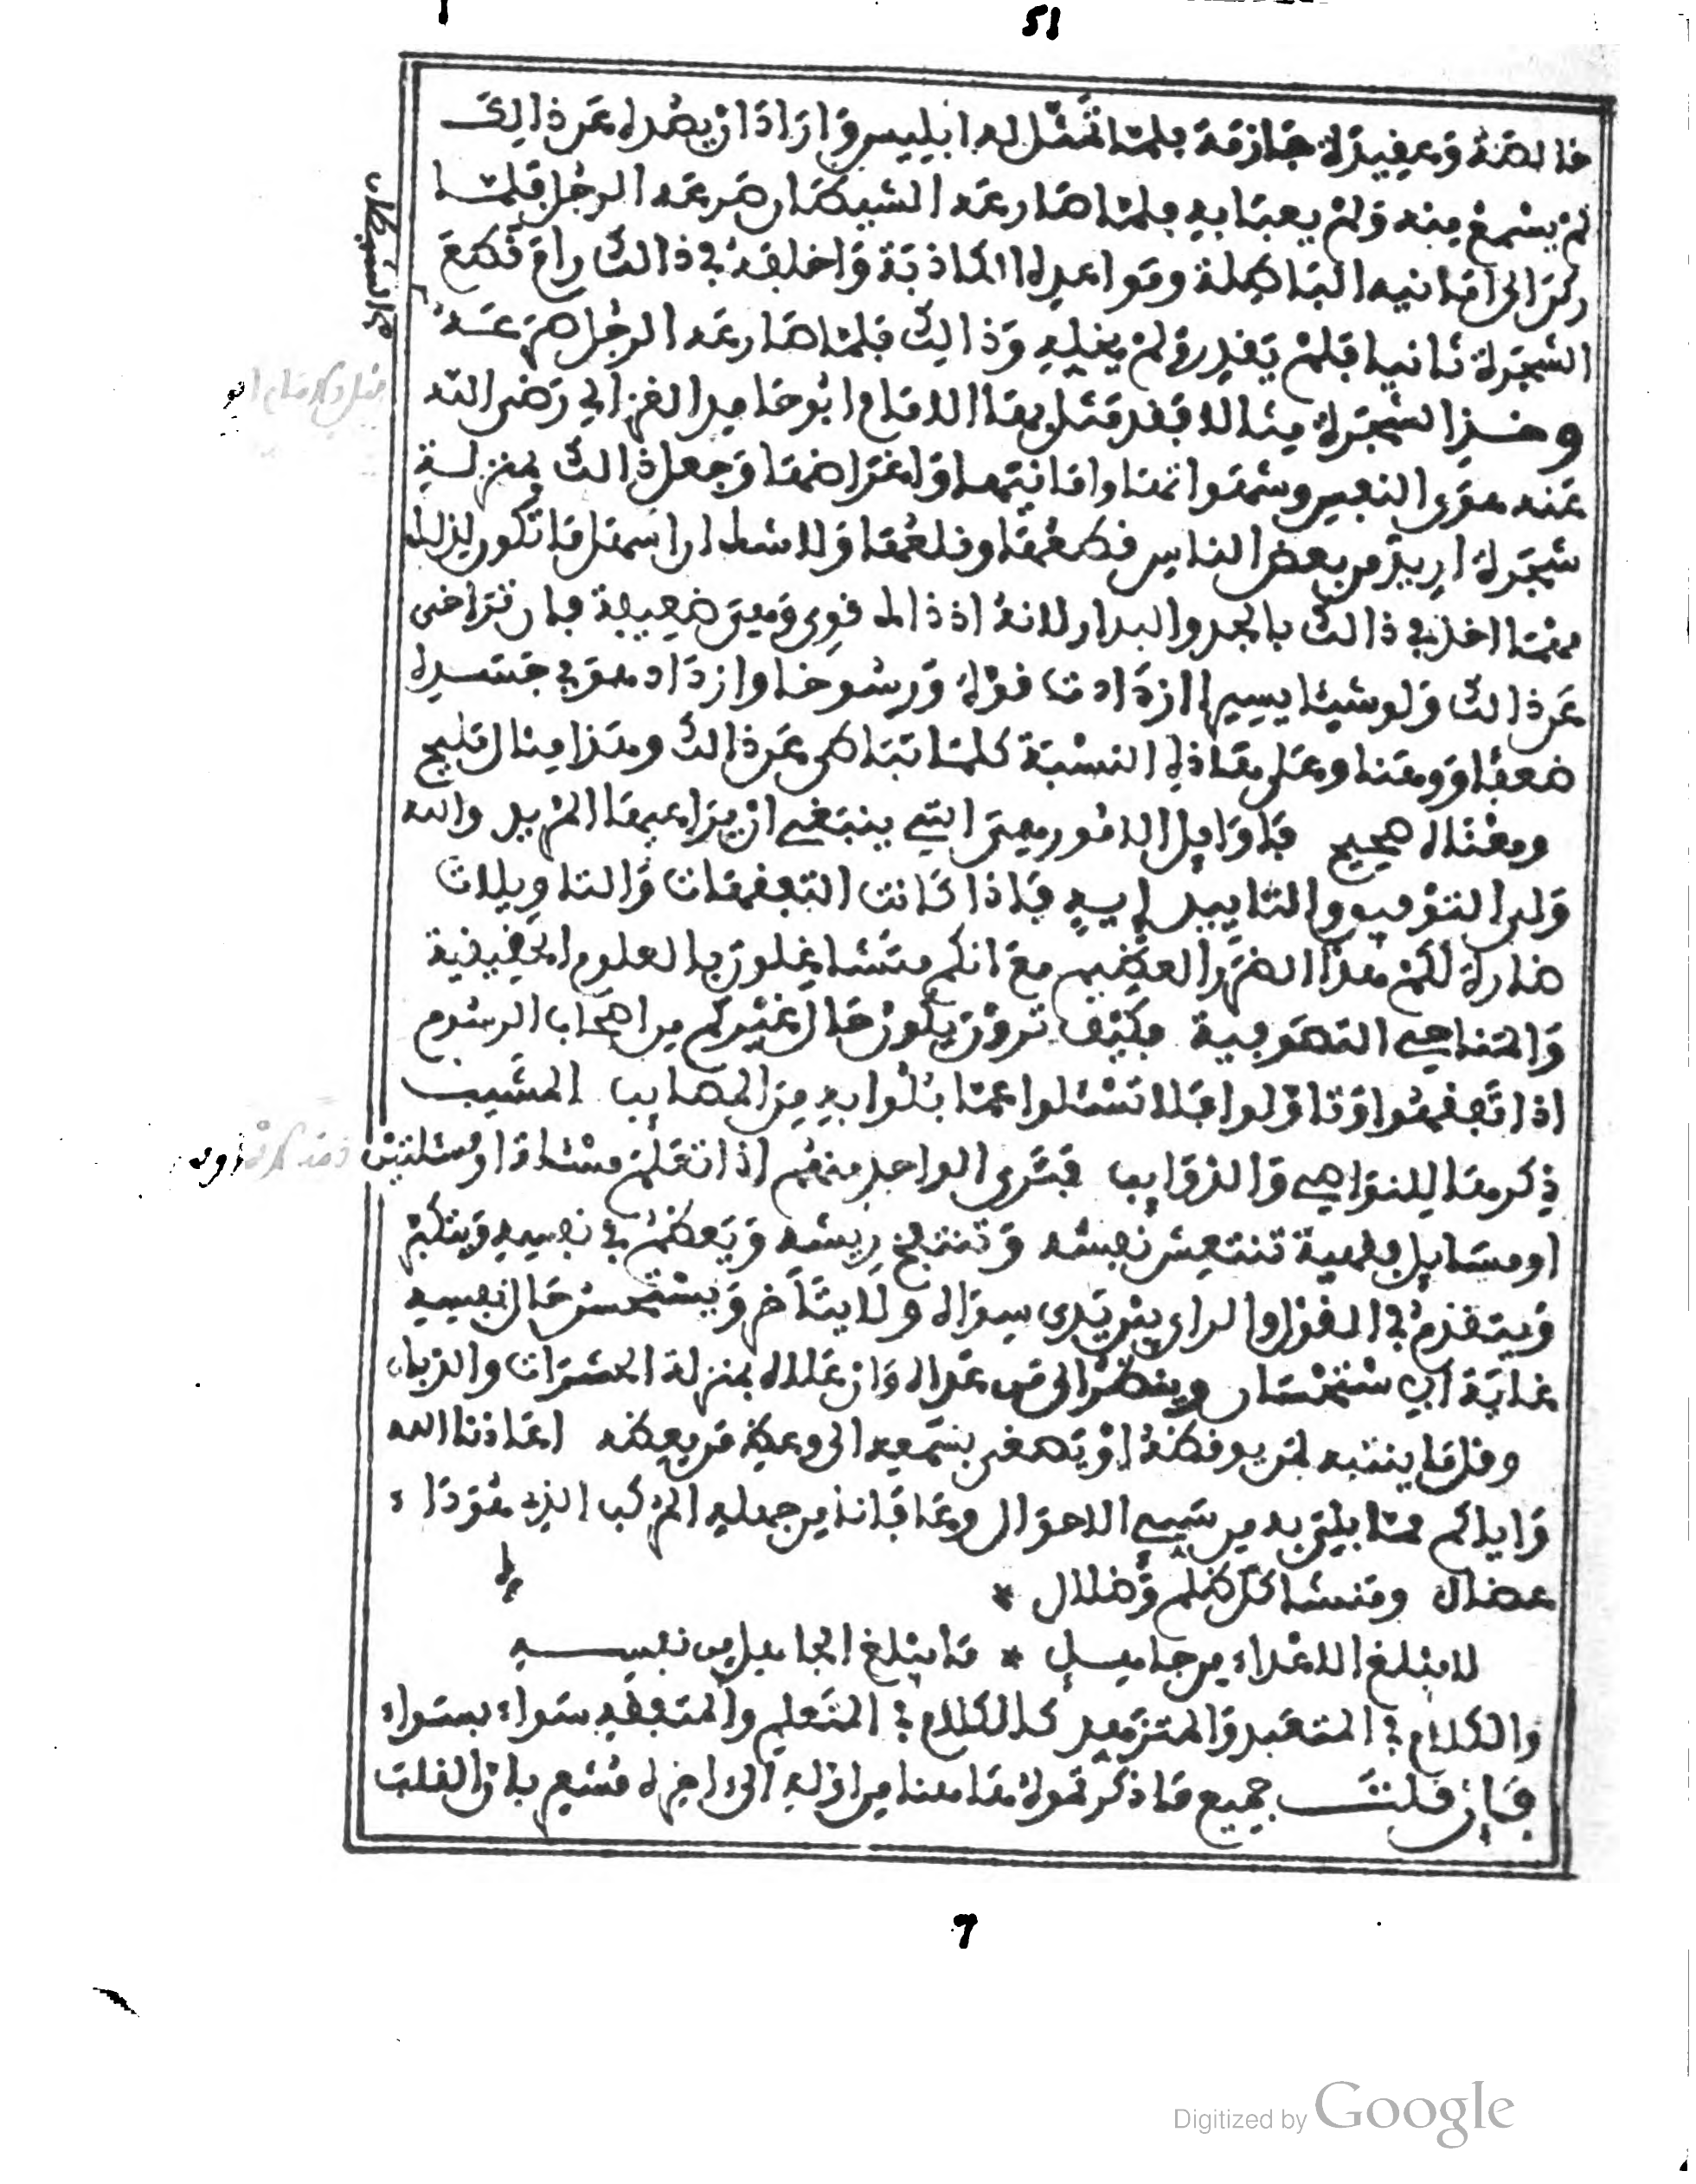 51
خالصة وعقيدة جازمة فلما تمثل له ابليس واراد ان يصده عن ذالك
لم يسمع منه ولم يعبا به فلما صارعه الشيطان صرعه الرجل فلما
ركن الى امانيه الباطلة ومواعده الكاذبة واخلفه في ذالك رام قطع
الشجرة ثانيا فلم يقدر ولم يخله وذالك فلما صارعه الرجل صرعه
الشيطان
وهذا الشجرة مثالا فقد مثل بها الامام ابو حامد الغزالي رضي الله
عنه هوى النفس وشهواتها وامانيها واغراضها وجعل ذالك بمنزلة
شجرة اريد من بعض الناس قطعها وقلعها ولا شك ان اسهل ما تكون لذلك
مهما اخذ في ذالك بالجد والبدار لانه اذ ذاك قوي وهي ضعيفة فان تراخى
عن ذالك ولو شيئا يسيرا ازدادت قوة ورسوخا وازداد هو في جسده
ضعفا ووهنا وعلى هاذه النسبة كلما تباطى عن ذالك وهذا مثال مليح
ومعناه صحيح فاوايل الامور هي التي ينبغي ان يراعيها المريد والله
ولي التوفيق والتاييد ايه فاذا كانت التفقهات والتاويلات
ضارة لكم هذا الضرر العظيم مع انكم متشاغلون بالعلوم الحقيقية
والمناحي التصوفية فكيف ترون يكون حال غيركم من اصحاب الرسوم
اذا تفقهوا وتاولوا فلا تسئلوا عما بلوا به من المصايب المشيب
ذكرها للنواصي والذوايب فترى الواحد منهم اذا تعلم مسئلة او مسئلتين
او مسايل فقهية تنتعش نفسه وتنتفخ ريشه ويعظم في نفسه ويتكبر
ويتقدم في القول والراي بين يدي سواه ولا يتاخر ويستحسن حال نفسه
غاية الاستحسان وينظر الى من عداه وان علاه بمنزلة الحشرات والذباب
وقل ما ينتبه لمن يوقظه او يصغى بسمعه الى وعظ من يعظه اعاذنا الله
واياكم مما بلي به من سيئ الاحوال وعافانا من جهله المركب الذي هو داء
عضال ومنشا كل ظلم وضلال *
لا يبلغ الاعداء من جاهل * ما يبلغ الجاهل من نفسه
والكلام في المتعبد والمتزهد كالكلام في المتعلم والمتفقه سواء بسواء
فان قلت جميع ما ذكرتموه هاهنا من اوله الى اخره مشعر بان القلب
7
Digitized by Google